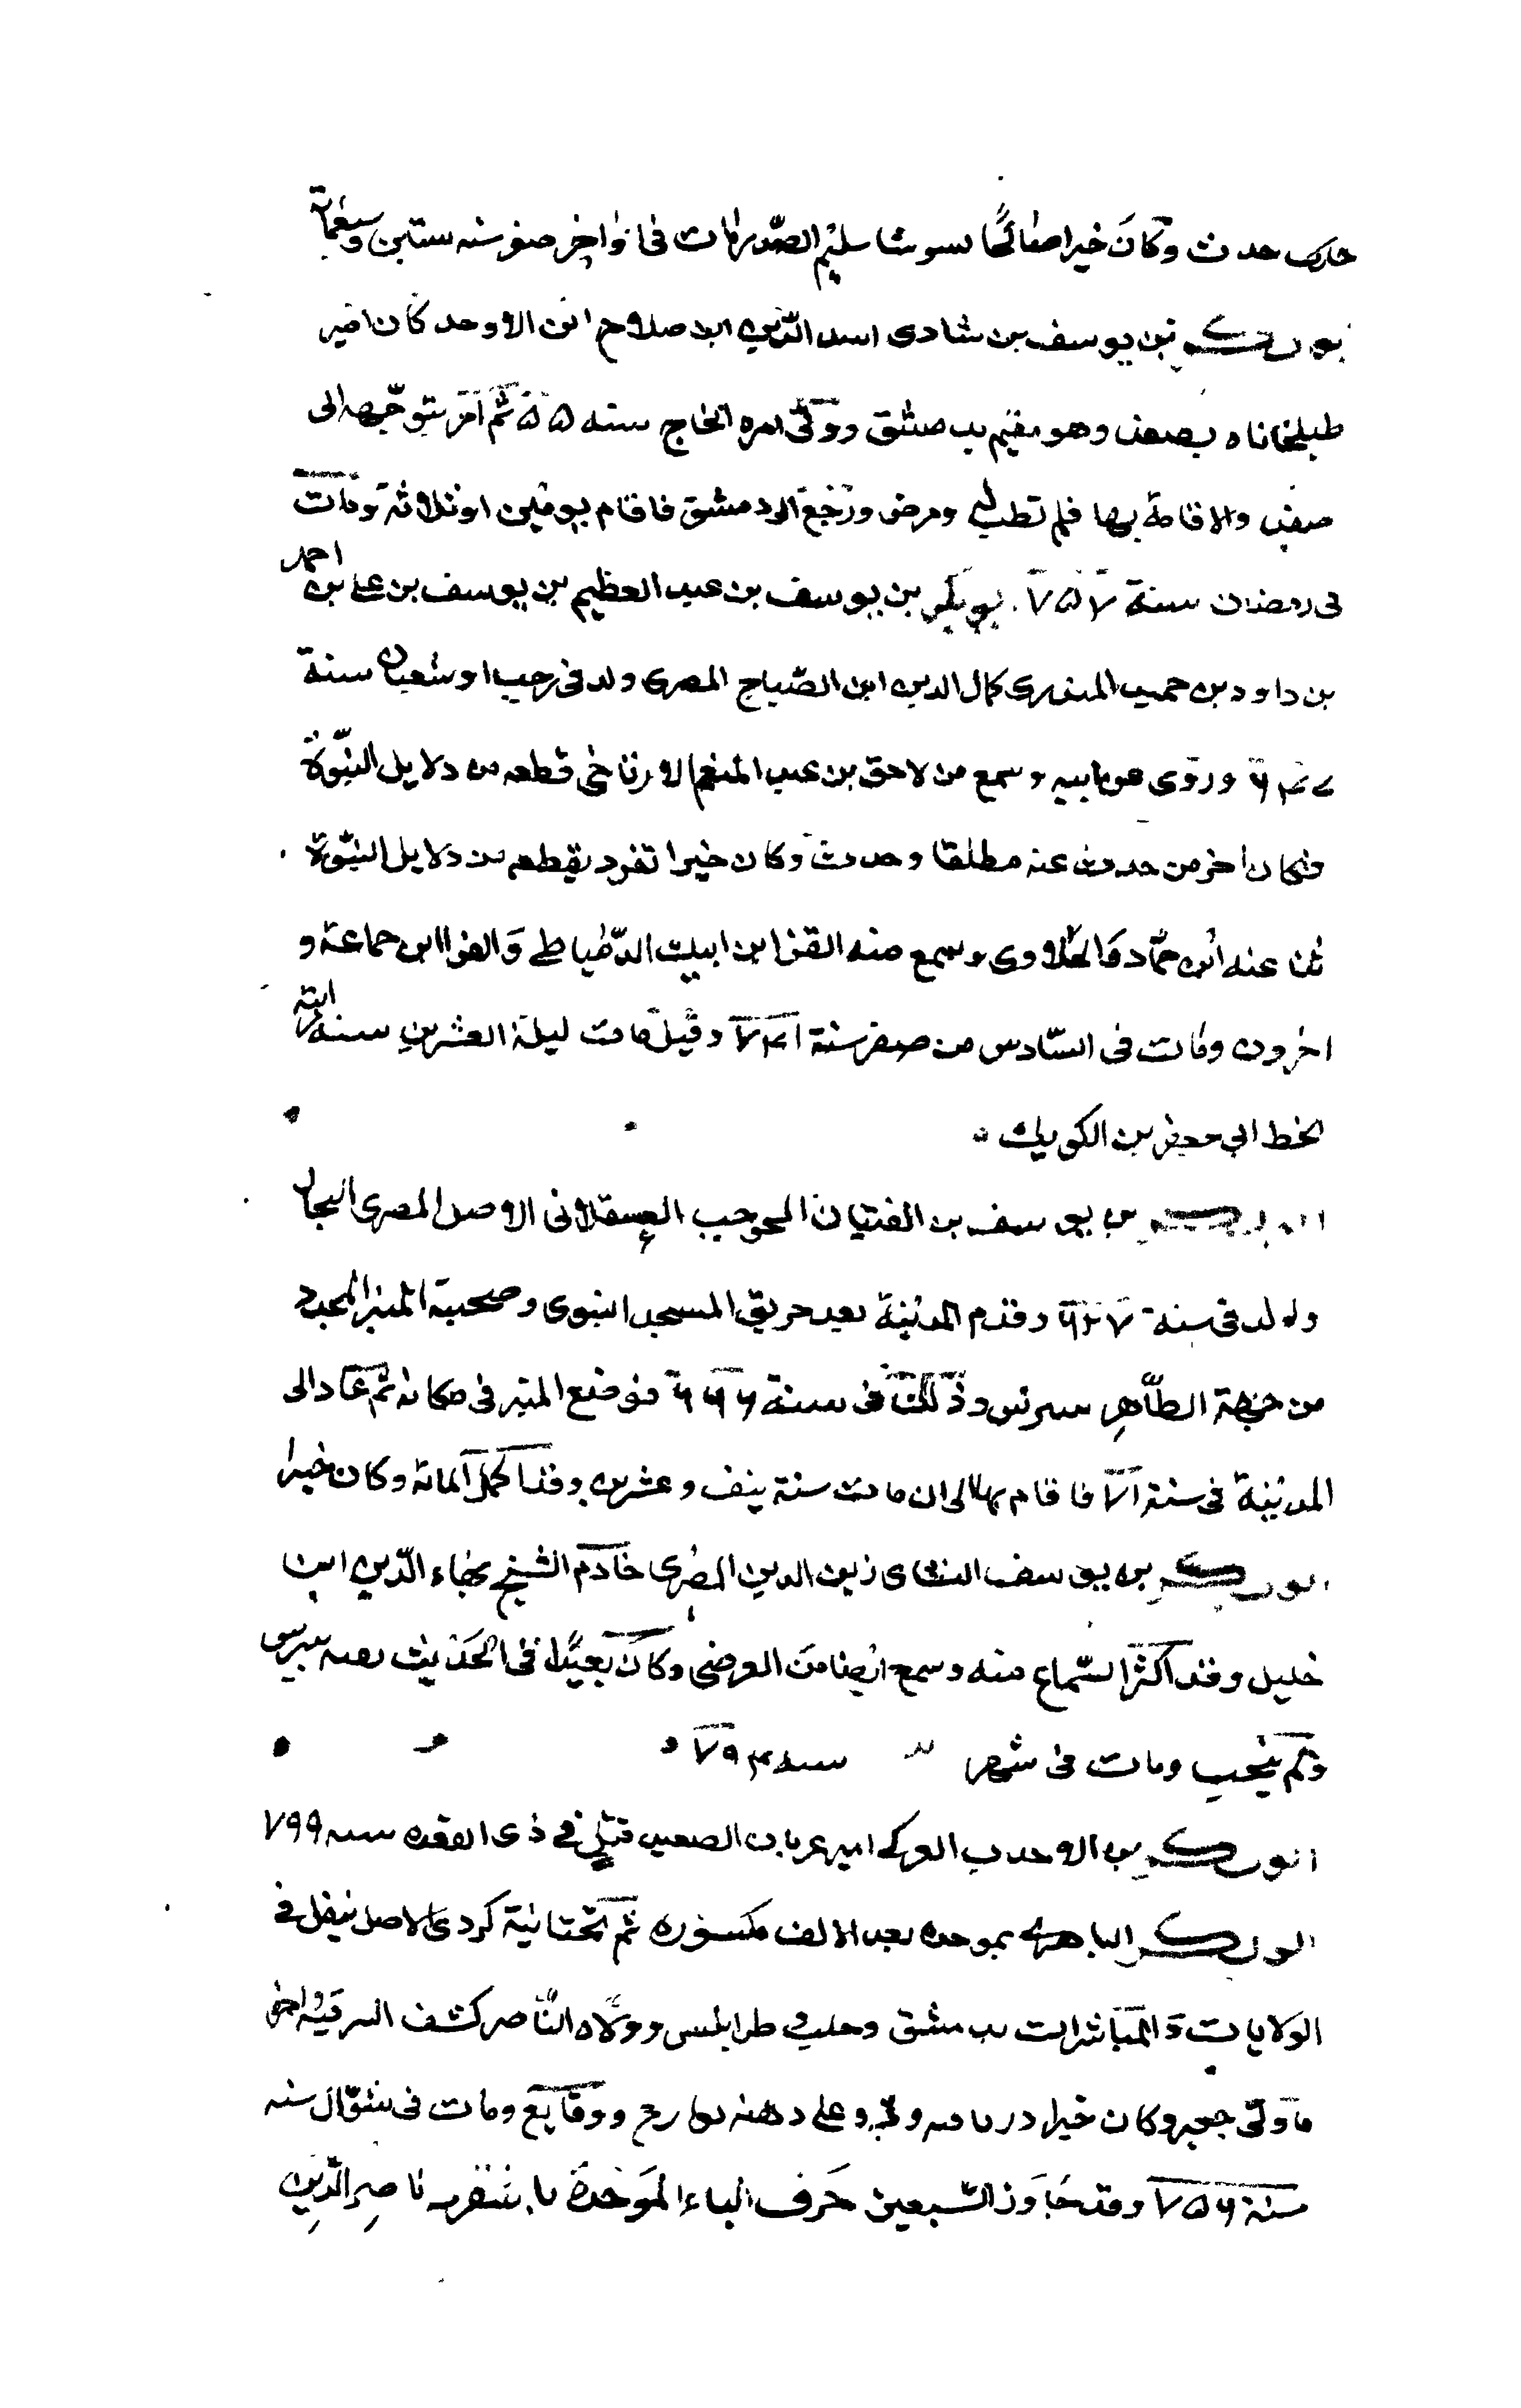 حدث وكان خيرا صالحا سليم الصدر مات فى اواخر صفر سنه ستين وسبعمائة
بن يوسف بن شادى اسد الدين ابن صلاح ابن الاوحد كان امير
طبلخاناه بصفد وهو مقيم بدمشق وولى امره الحاج سنه ٥٥ ثم امر بتوجهه الى
صفد والاقامة بها فلم تطب له ومرض ورجع الى دمشق فاقام يومين او ثلاثة ومات
فى رمضان سنة ٧٥٧ ابو بكر بن يوسف بن عبد العظيم بن يوسف بن على بن احمد
بن داود بن حميد المنذرى كمال الدين ابن الصياح المصرى ولد فى رجب او شعبان سنة
وروى عن ابيه وسمع من لاحق بن عبد المنعم الارتاحى قطعه من دلايل النبوة
وكان اخر من حدث عنه مطلقا وحدث وكان خيرا تفرد بقطعه من دلايل النبوة
ثنا عنه ابن حماد والحلاوى وسمع منه ابن ايبك الدمياطى والعز ابن جماعة و
اخرون ومات فى السادس من صفر سنة ٧٤١ وقيل مات ليلة العشرين منه
الخط ابى جعفر بن الكويك
بن يوسف بن الفتيان المحوجب العسقلانى الاصل المصرى النجار
ولد فى سنة ٦٢٧ وقدم المدينة بعد حريق المسجد النبوى وصحبة المنبر المجدد
من جهة الظاهر بيبرس وذلك فى سنة ٦٦٦ فوضع المنبر فى مكانه ثم عاد الى
المدينة فى سنة فاقام بها الى ان مات سنة نيف وعشرين وقد اكمل المائة وكان خيرا
ابو بكر بن يوسف النشاى زين الدين المصرى خادم الشيخ بهاء الدين ابن
خليل وقد اكثر السماع منه وسمع ايضا من العرضى وكان بعيدا فى الحديث بصه بيبرس
ولم ينجب ومات فى شهر سنه ٧٩٣
ابو بكر بن الاحدب العركى امير عربان الصعيد قتل فى ذى القعده سنه ٧٩٩
ابو بكر البابيرى بموحده بعد الالف مكسوره ثم تحتانية كردى الاصل تنقل فى
الولايات والمباشرات بدمشق وحلب وطرابلس وولاه الناصر كشف الشرقيه واخر
ما ولى جعبر وكان خيرا وعلى ذهنه تواريخ ووقايع ومات فى شوال سنه
سنة ٧٥٦ وقد جاوز السبعين حرف الباء الموحدة باشقرد ناصر الدين